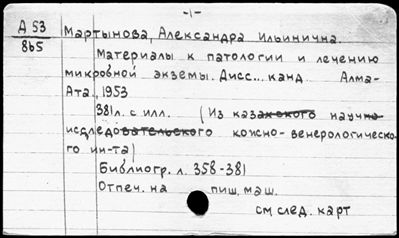 -1-
Д 53
865
Мартынова, Александра Ильинична.
Материалы к патологии и лечению
микробной экземы. Дисс... канд. Алма-
Ата, 1953
381л. с илл. (Из казахского научно
исследовательского кожно-венерологическо-
го ин-та)
Библиогр. л. 358-381
Отпеч. на пиш. маш.
см след. карт